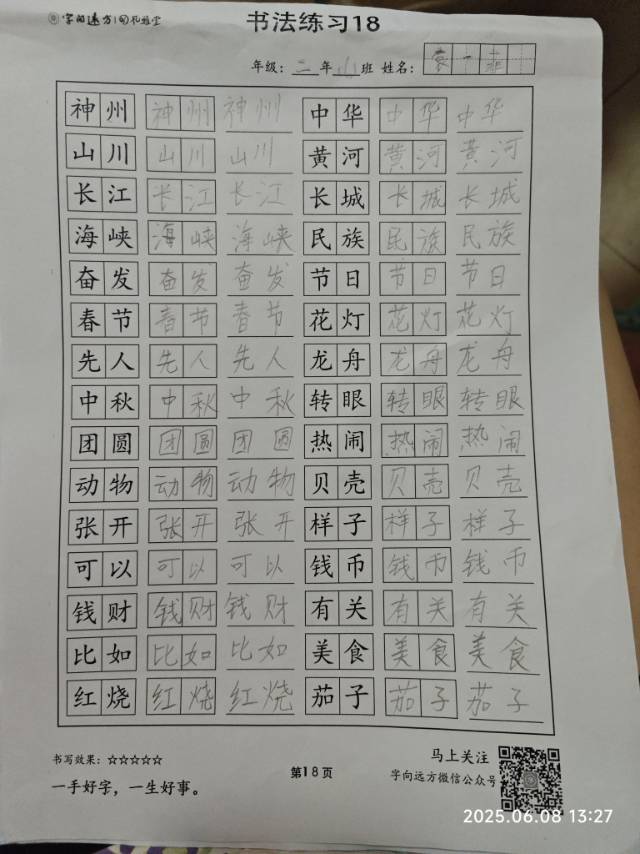 字向远方
书法练习18
年级：二年 班 姓名：
神州 神州 神州 中华 中华 中华
山川 山川 山川 黄河 黄河 黄河
长江 长江 长江 长城 长城 长城
海峡 海峡 海峡 民族 民族 民族
奋发 奋发 奋发 节日 节日 节日
春节 春节 春节 花灯 花灯 花灯
先人 先人 先人 龙舟 龙舟 龙舟
中秋 中秋 中秋 转眼 转眼 转眼
团圆 团圆 团圆 热闹 热闹 热闹
动物 动物 动物 贝壳 贝壳 贝壳
张开 张开 张开 样子 样子 样子
可以 可以 可以 钱币 钱币 钱币
钱财 钱财 钱财 有关 有关 有关
比如 比如 比如 美食 美食 美食
红烧 红烧 红烧 茄子 茄子 茄子
书写效果：☆☆☆☆☆ 马上关注
一手好字，一生好事。 第18页 字向远方微信公众号
2025.06.08 13:27